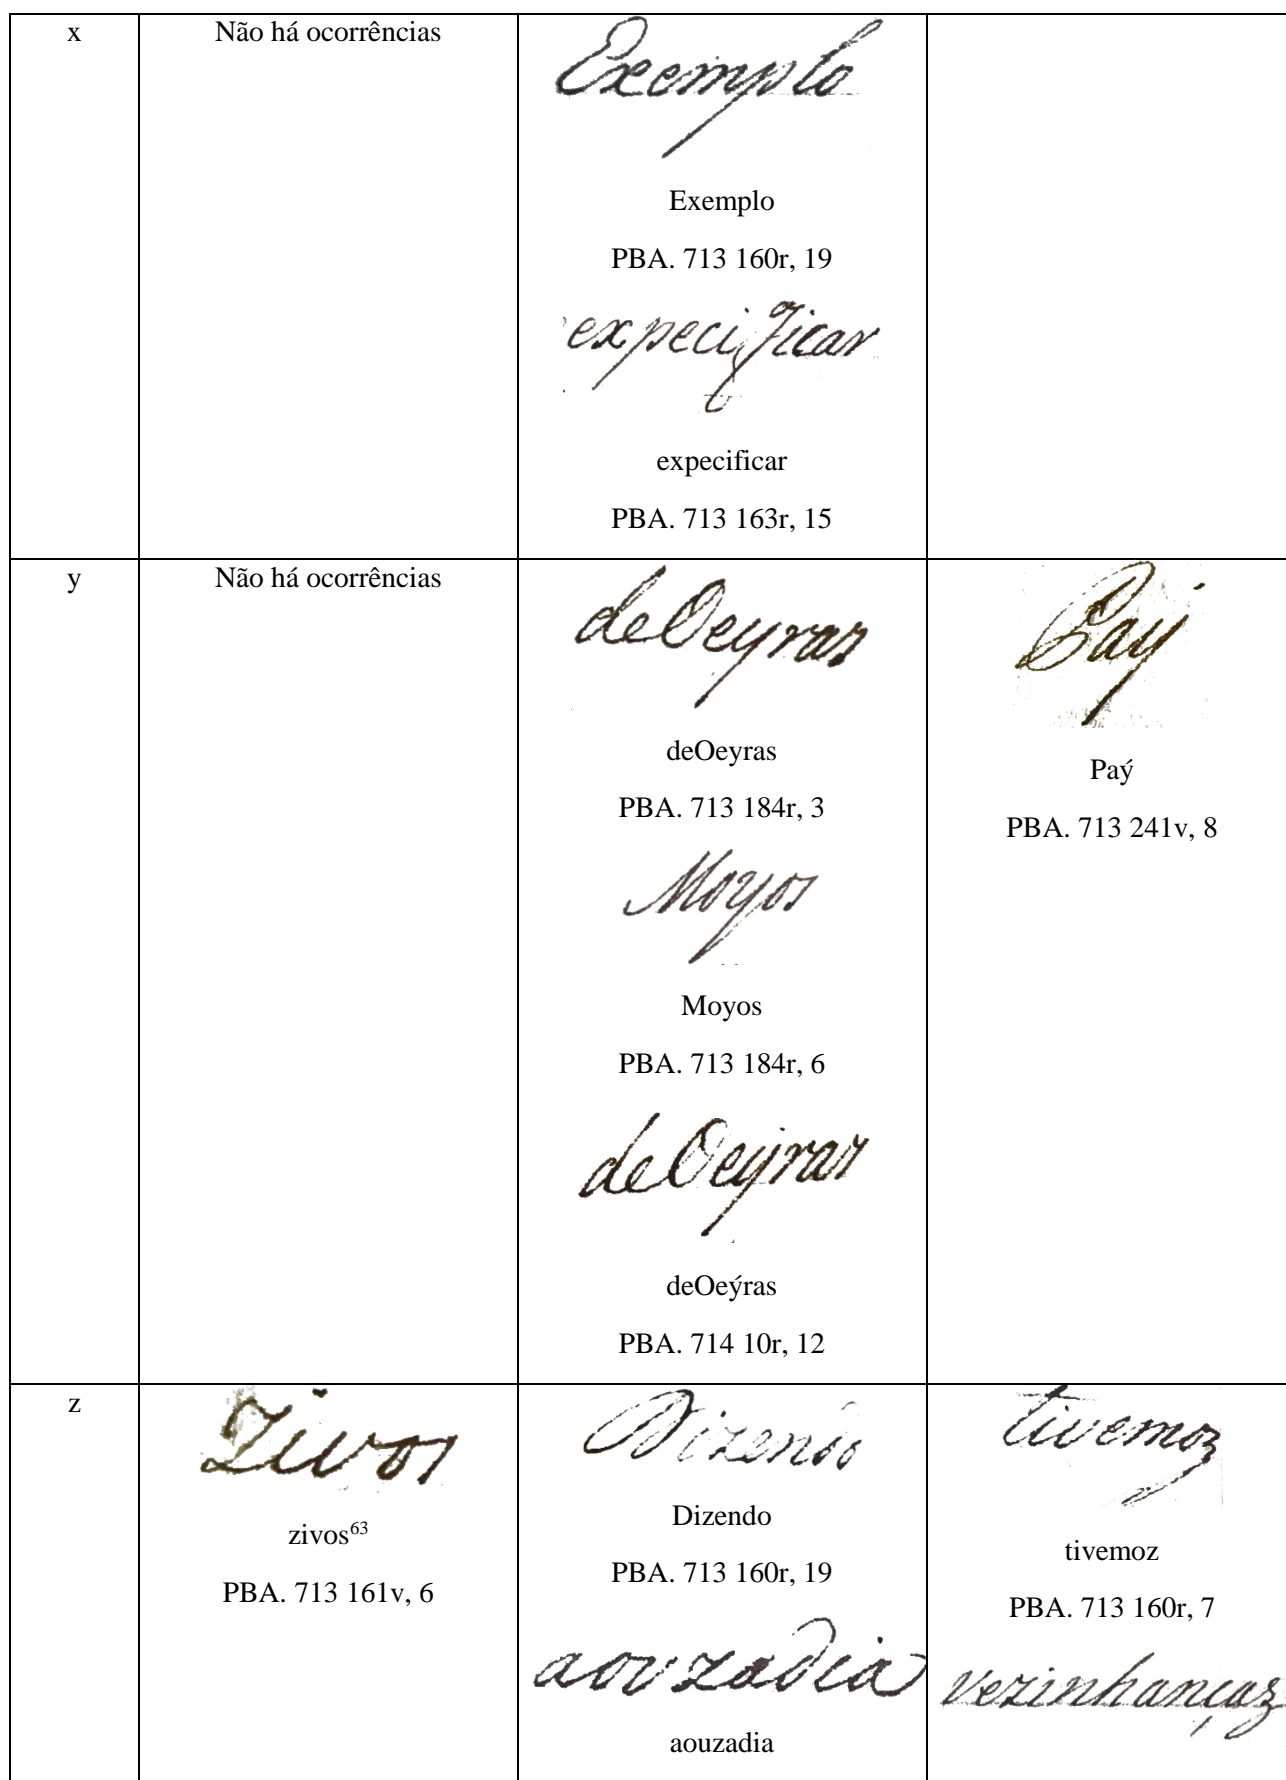 x
Não há ocorrências
Exemplo
Exemplo
PBA. 713 160r, 19
expecificar
expecificar
PBA. 713 163r, 15
y
Não há ocorrências
deOeyras
deOeyras
PBA. 713 184r, 3
Moyos
Moyos
PBA. 713 184r, 6
deOeýras
deOeýras
PBA. 714 10r, 12
Paý
Paý
PBA. 713 241v, 8
z
zivos
zivos⁶³
PBA. 713 161v, 6
Dizendo
Dizendo
PBA. 713 160r, 19
aouzadia
aouzadia
tivemoz
tivemoz
PBA. 713 160r, 7
vezinhançaz